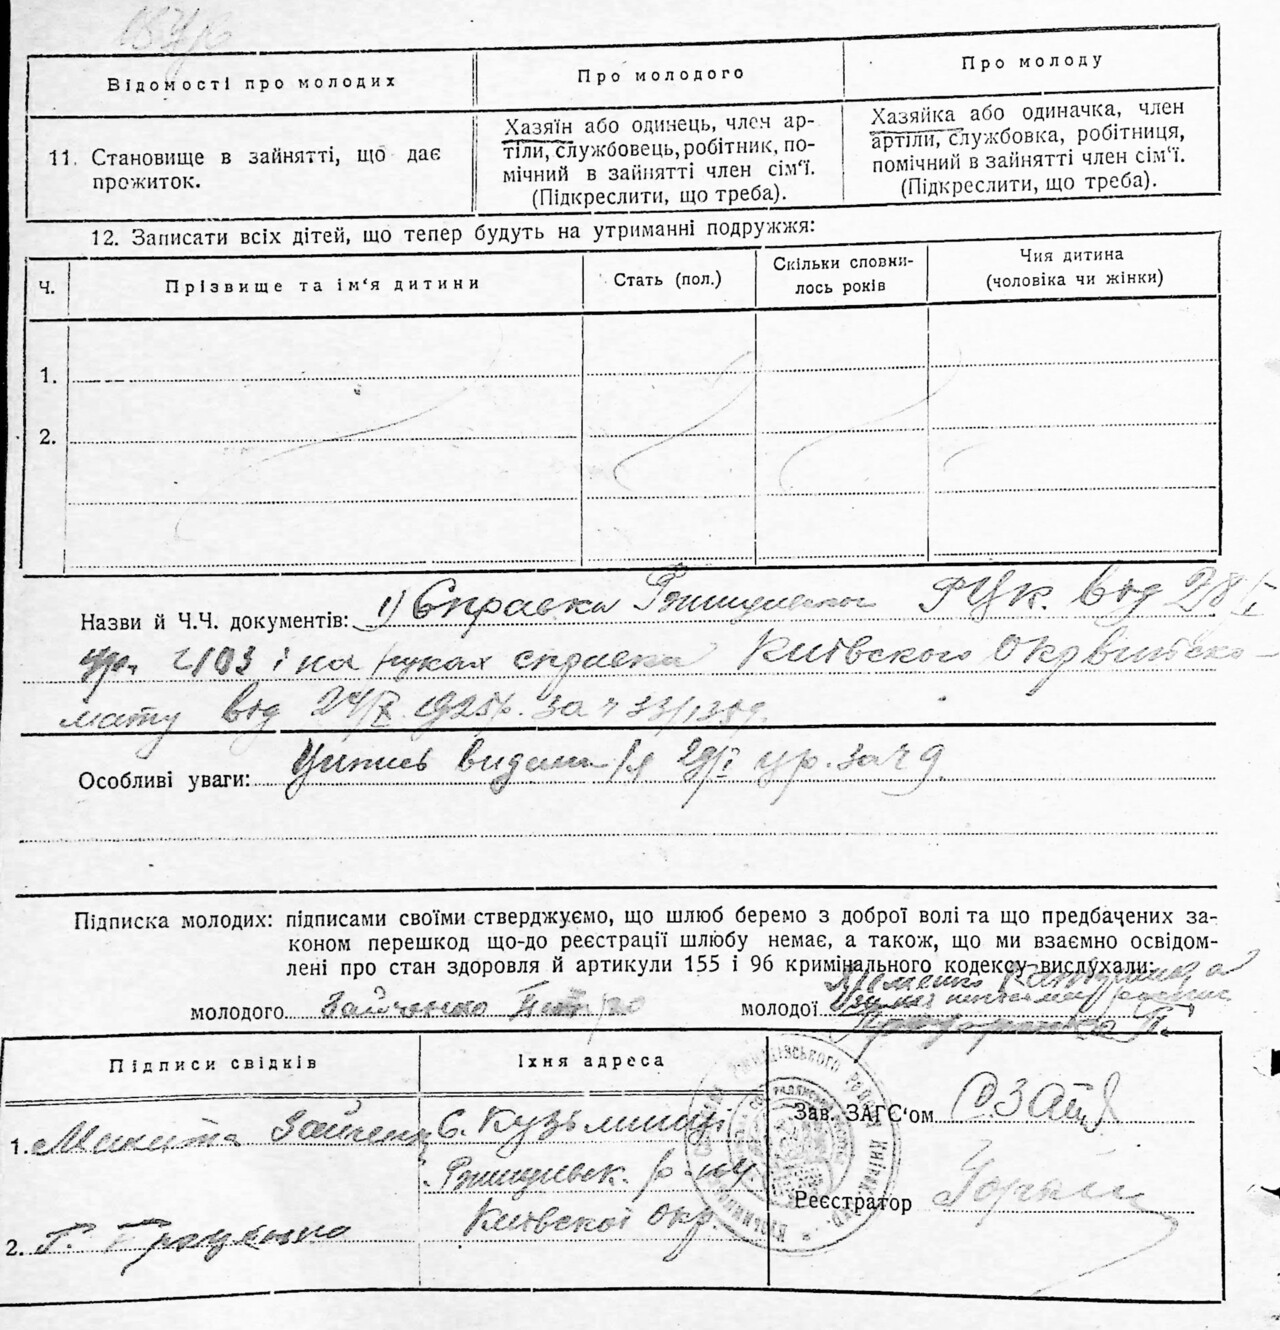 Відомості про молодих
Про молодого
Про молоду
11. Становище в зайнятті, що дає
прожиток.
Хазяїн або одинець, член ар-
тіли, службовець, робітник, по-
мічний в зайнятті член сім'ї.
(Підкреслити, що треба).
Хазяйка або одиначка, член
артіли, службовка, робітниця,
помічний в зайнятті член сім'ї.
(Підкреслити, що треба).
12. Записати всіх дітей, що тепер будуть на утриманні подружжя:
Ч.
Прізвище та ім'я дитини
Стать (пол.)
Скільки сповни-
лось років
Чия дитина
(чоловіка чи жінки)
1.
2.
Назви й Ч.Ч. документів: 1) Справка РЦК. від 28/I
і на руках справка Київского Окрвійско-
мату від 1925 р. за ч 33/1359.
Особливі уваги: видана 29/I ц.р. за ч 9
Підписка молодих: підписами своїми стверджуємо, що шлюб беремо з доброї волі та що предбачених за-
коном перешкод що-до реєстрації шлюбу немає, а також, що ми взаємно освідом-
лені про стан здоров'я й артикули 155 і 96 кримінального кодексу вислухали:
молодого Зайченко Петро
молодої
Підписи свідків
Їхня адреса
1. Микита Зайченко
С. Кузьминці
Ржищівськ. р-ну
Київской окр.
2. Г. Гроценко
Зав. ЗАГС'ом
Реєстратор